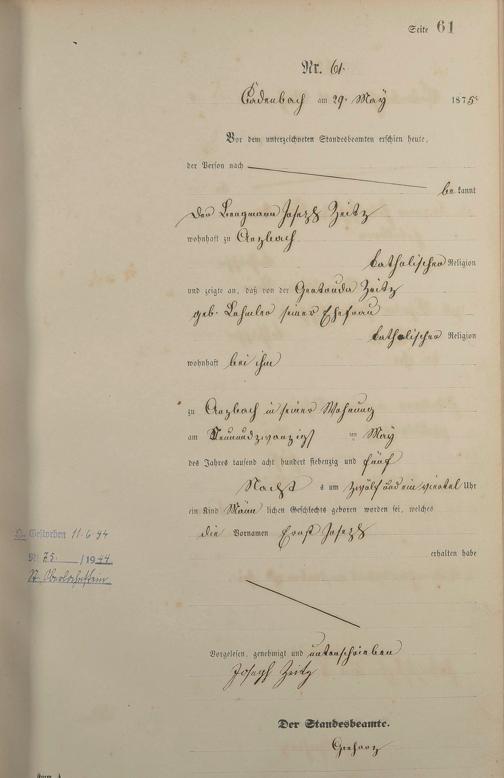 Seite 61
Nr. 61.
Cadenbach am 29. May 1875
Vor dem unterzeichneten Standesbeamten erschien heute,
der Person nach
be kannt
Der Bergmann Joseph Zeitz
wohnhaft zu Arzbach
katholischer Religion
und zeigte an, daß von der Gertruda Zeitz
geb. Lehmler seiner Ehefrau
katholischer Religion
wohnhaft bei ihm
zu Arzbach in seiner Wohnung
am Neunundzwanzigst ten May
des Jahres tausend acht hundert siebenzig und fünf
Nachts um zwölf und ein viertel Uhr
ein Kind Männ lichen Geschlechts geboren worden sei, welches
die Vornamen Ernst Joseph
erhalten habe
Gestorben 11.6.44
Nr. 75. / 1944
St.
Vorgelesen, genehmigt und unterschrieben
Joseph Zeitz
Der Standesbeamte.